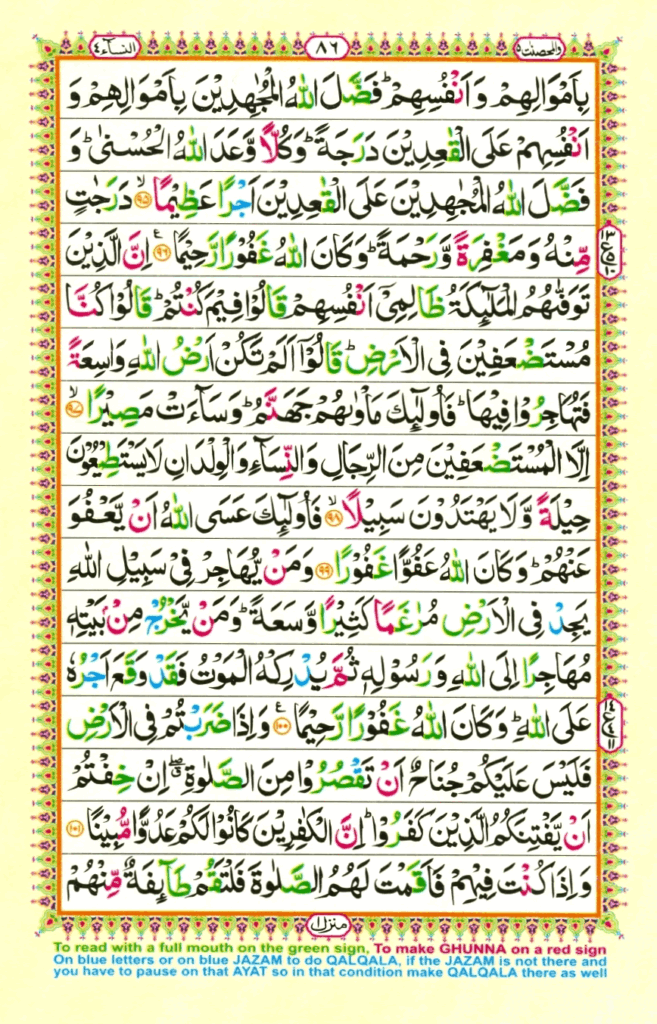 النسآء٤ ٨٦ والمحصنت٥
بِاَمْوَالِهِمْ وَاَنْفُسِهِمْ ؕ فَضَّلَ اللّٰهُ الْمُجٰهِدِيْنَ بِاَمْوَالِهِمْ وَ
اَنْفُسِهِمْ عَلَى الْقٰعِدِيْنَ دَرَجَةً ؕ وَكُلًّا وَّعَدَ اللّٰهُ الْحُسْنٰى ؕ وَ
فَضَّلَ اللّٰهُ الْمُجٰهِدِيْنَ عَلَى الْقٰعِدِيْنَ اَجْرًا عَظِيْمًا ۙ‏﴿۹۵﴾ دَرَجٰتٍ
مِّنْهُ وَمَغْفِرَةً وَّرَحْمَةً ؕ وَكَانَ اللّٰهُ غَفُوْرًا رَّحِيْمًا ﴿۹۶﴾ اِنَّ الَّذِيْنَ
تَوَفّٰٮهُمُ الْمَلٰٓٮِٕكَةُ ظَالِمِىْٓ اَنْفُسِهِمْ قَالُوْا فِيْمَ كُنْتُمْ ؕ قَالُوْا كُنَّا
مُسْتَضْعَفِيْنَ فِى الْاَرْضِ ؕ قَالُوْٓا اَلَمْ تَكُنْ اَرْضُ اللّٰهِ وَاسِعَةً
فَتُهَاجِرُوْا فِيْهَا ؕ فَاُولٰٓٮِٕكَ مَاْوٰٮهُمْ جَهَنَّمُ ؕ وَسَآءَتْ مَصِيْرًا ۙ﴿۹۷﴾
اِلَّا الْمُسْتَضْعَفِيْنَ مِنَ الرِّجَالِ وَالنِّسَآءِ وَالْوِلْدَانِ لَا يَسْتَطِيْعُوْنَ
حِيْلَةً وَّلَا يَهْتَدُوْنَ سَبِيْلًا ۙ﴿۹۸﴾ فَاُولٰٓٮِٕكَ عَسَى اللّٰهُ اَنْ يَّعْفُوَ
عَنْهُمْ ؕ وَكَانَ اللّٰهُ عَفُوًّا غَفُوْرًا ﴿۹۹﴾ وَمَنْ يُّهَاجِرْ فِىْ سَبِيْلِ اللّٰهِ
يَجِدْ فِى الْاَرْضِ مُرٰغَمًا كَثِيْرًا وَّسَعَةً ؕ وَمَنْ يَّخْرُجْ مِنْۢ بَيْتِهٖ
مُهَاجِرًا اِلَى اللّٰهِ وَرَسُوْلِهٖ ثُمَّ يُدْرِكْهُ الْمَوْتُ فَقَدْ وَقَعَ اَجْرُهٗ
عَلَى اللّٰهِ ؕ وَكَانَ اللّٰهُ غَفُوْرًا رَّحِيْمًا ﴿۱۰۰﴾ وَاِذَا ضَرَبْتُمْ فِى الْاَرْضِ
فَلَيْسَ عَلَيْكُمْ جُنَاحٌ اَنْ تَقْصُرُوْا مِنَ الصَّلٰوةِ ۖ اِنْ خِفْتُمْ
اَنْ يَّفْتِنَكُمُ الَّذِيْنَ كَفَرُوْا ؕ اِنَّ الْكٰفِرِيْنَ كَانُوْا لَكُمْ عَدُوًّا مُّبِيْنًا ﴿۱۰۱﴾
وَاِذَا كُنْتَ فِيْهِمْ فَاَقَمْتَ لَهُمُ الصَّلٰوةَ فَلْتَقُمْ طَآٮِٕفَةٌ مِّنْهُمْ
منزل١
To read with a full mouth on the green sign, To make GHUNNA on a red sign
On blue letters or on blue JAZAM to do QALQALA, if the JAZAM is not there and
you have to pause on that AYAT so in that condition make QALQALA there as well